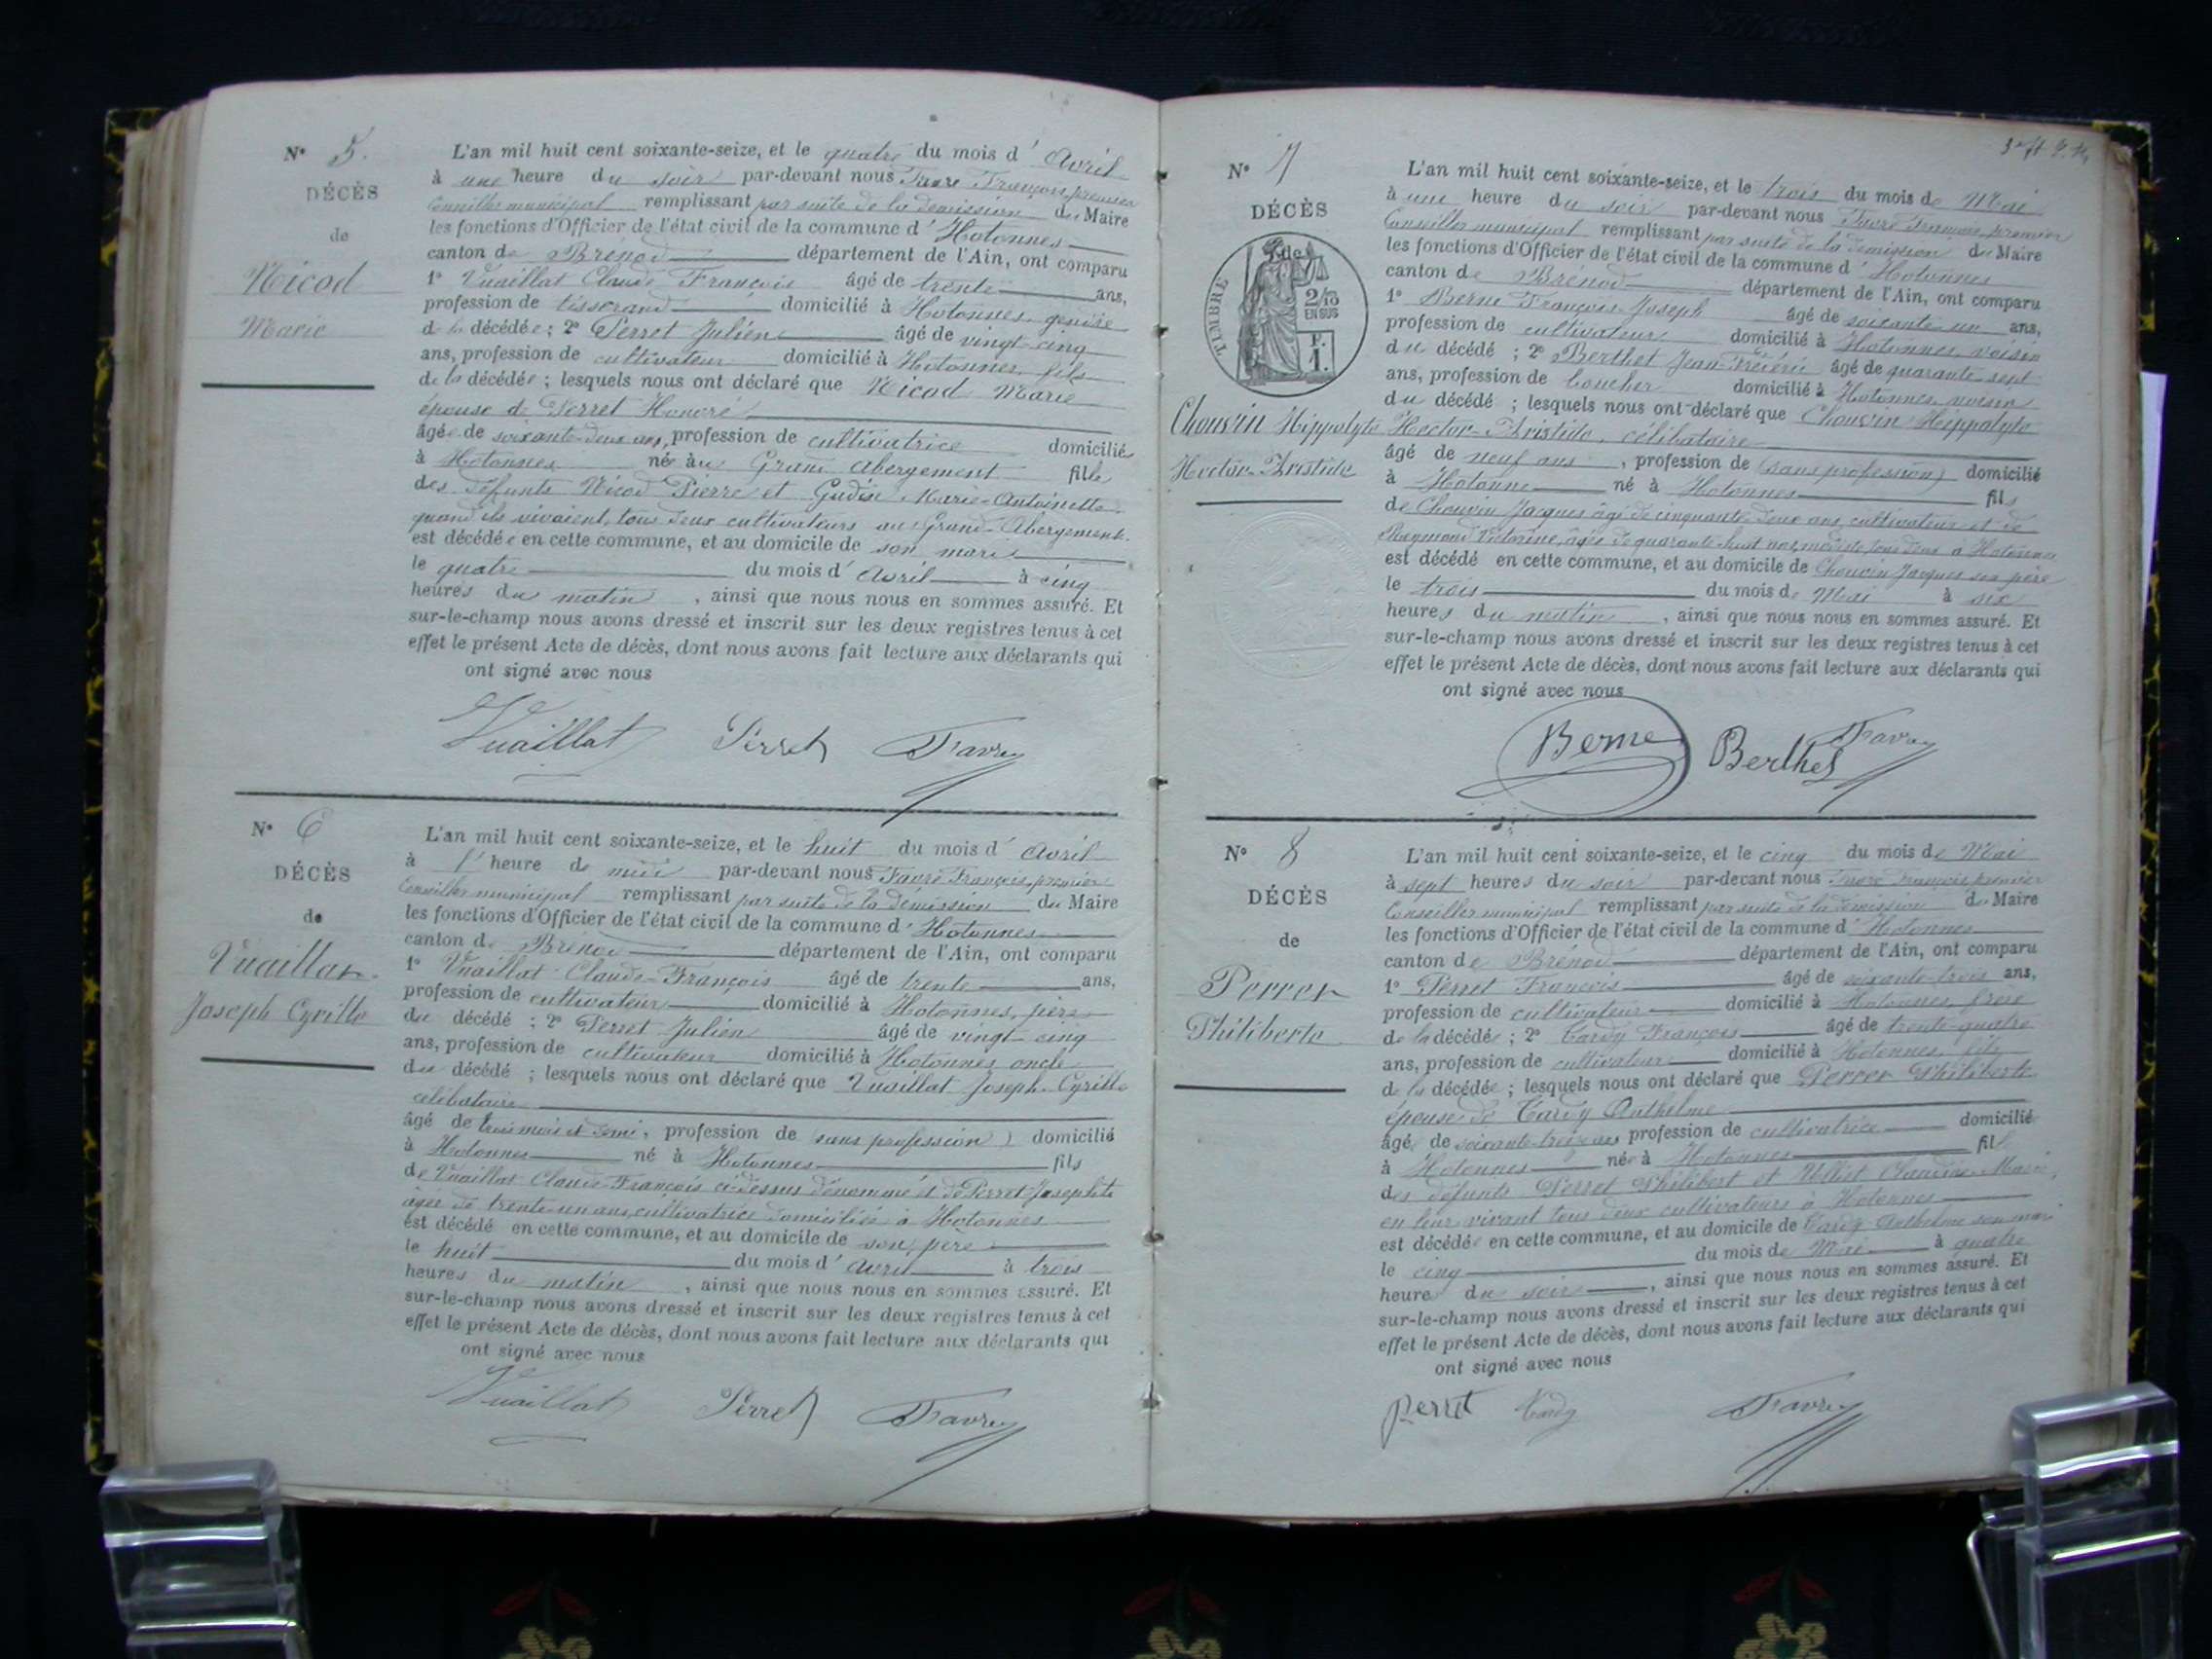 N° 5.
DÉCÈS
de
Nicod
Marie
L'an mil huit cent soixante-seize, et le quatre du mois d'Avril
à une heure du soir par-devant nous Favre François, premier
Conseiller municipal remplissant par suite de la démission du Maire
les fonctions d'Officier de l'état civil de la commune d'Hotonnes
canton de Brénod département de l'Ain, ont comparu
1° Vuaillat Claude François âgé de trente ans,
profession de tisserand domicilié à Hotonnes, gendre
de la décédée ; 2° Perret Julien âgé de vingt-cinq
ans, profession de cultivateur domicilié à Hotonnes, fils
de la décédée ; lesquels nous ont déclaré que Nicod Marie
épouse de Perret Honoré
âgée de soixante-deux ans, profession de cultivatrice domiciliée
à Hotonnes née au Grand Abergement fille
des défunts Nicod Pierre et Gudin Marie-Antoinette
quand ils vivaient, tous deux cultivateurs au Grand-Abergement.
est décédée en cette commune, et au domicile de son mari
le quatre du mois d'Avril à cinq
heures du matin, ainsi que nous nous en sommes assuré. Et
sur-le-champ nous avons dressé et inscrit sur les deux registres tenus à cet
effet le présent Acte de décès, dont nous avons fait lecture aux déclarants qui
ont signé avec nous
Vuaillat Perret Favre
N° 6
DÉCÈS
de
Vuaillat
Joseph Cyrille
L'an mil huit cent soixante-seize, et le huit du mois d'Avril
à l'heure de midi par-devant nous Favre François, premier
Conseiller municipal remplissant par suite de la démission du Maire
les fonctions d'Officier de l'état civil de la commune d'Hotonnes
canton de Brénod département de l'Ain, ont comparu
1° Vuaillat Claude-François âgé de trente ans,
profession de cultivateur domicilié à Hotonnes, père
du décédé ; 2° Perret Julien âgé de vingt-cinq
ans, profession de cultivateur domicilié à Hotonnes oncle
du décédé ; lesquels nous ont déclaré que Vuaillat Joseph-Cyrille
célibataire
âgé de trois mois et demi, profession de (sans profession) domicilié
à Hotonnes né à Hotonnes fils
de Vuaillat Claude François ci-dessus dénommé et de Perret Josephte
âgée de trente-un ans, cultivatrice domiciliée à Hotonnes
est décédé en cette commune, et au domicile de son père
le huit du mois d'Avril à trois
heures du matin, ainsi que nous nous en sommes assuré. Et
sur-le-champ nous avons dressé et inscrit sur les deux registres tenus à cet
effet le présent Acte de décès, dont nous avons fait lecture aux déclarants qui
ont signé avec nous
Vuaillat Perret Favre
N° 7
DÉCÈS
de
TIMBRE
2/10
EN SUS
F.
1.
Chouvin Hippolyte
Hector-Aristide
L'an mil huit cent soixante-seize, et le trois du mois de Mai
à une heure du soir par-devant nous Favre François, premier
Conseiller municipal remplissant par suite de la démission du Maire
les fonctions d'Officier de l'état civil de la commune d'Hotonnes
canton de Brénod département de l'Ain, ont comparu
1° Berne François-Joseph âgé de soixante-un ans,
profession de cultivateur domicilié à Hotonnes, voisin
du décédé ; 2° Berthet Jean-Fréderic âgé de quarante-sept
ans, profession de boucher domicilié à Hotonnes, voisin
du décédé ; lesquels nous ont déclaré que Chouvin Hippolyte
Hector-Aristide, célibataire
âgé de neuf ans, profession de (sans profession) domicilié
à Hotonne né à Hotonnes fils
de Chouvin Jacques âgé de cinquante-deux ans, cultivateur et de
Raymond Victorine, âgée de quarante-huit ans, modiste tous deux à Hotonnes
est décédé en cette commune, et au domicile de Chouvin Jacques son père
le trois du mois de Mai à six
heures du matin, ainsi que nous nous en sommes assuré. Et
sur-le-champ nous avons dressé et inscrit sur les deux registres tenus à cet
effet le présent Acte de décès, dont nous avons fait lecture aux déclarants qui
ont signé avec nous
Berne Berthet Favre
N° 8
DÉCÈS
de
Perret
Philiberte
L'an mil huit cent soixante-seize, et le cinq du mois de Mai
à sept heures du soir par-devant nous Favre François premier
Conseiller municipal remplissant par suite de la démission du Maire
les fonctions d'Officier de l'état civil de la commune d'Hotonnes
canton de Brénod département de l'Ain, ont comparu
1° Perret François âgé de soixante-trois ans,
profession de cultivateur domicilié à Hotonnes, frère
de la décédée ; 2° Cardy François âgé de trente-quatre
ans, profession de cultivateur domicilié à Hotonnes, fils
de la décédée ; lesquels nous ont déclaré que Perret Philiberte
épouse de Cardy Anthelme
âgée de soixante-treize ans profession de cultivatrice domicilié
à Hotonnes née à Hotonnes fille
des défunts Perret Philibert et Claudine-Marie,
en leur vivant tous deux cultivateurs à Hotonnes
est décédée en cette commune, et au domicile de Cardy Anthelme son mari
le cinq du mois de Mai à quatre
heures du soir, ainsi que nous nous en sommes assuré. Et
sur-le-champ nous avons dressé et inscrit sur les deux registres tenus à cet
effet le présent Acte de décès, dont nous avons fait lecture aux déclarants qui
ont signé avec nous
perret Cardy Favre